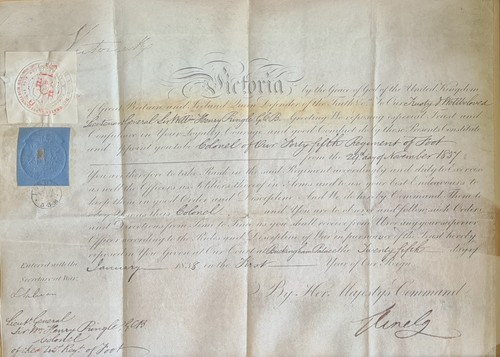 Victoria R
Victoria by the Grace of God of the United Kingdom
of Great Britain and Ireland Queen Defender of the Faith &c. To Our Trusty & Wellbeloved
Lieutenant General Sir Willm Henry Pringle G.C.B. Greeting We reposing especial Trust and
Confidence in Your Loyalty Courage and good Conduct do by these Presents Constitute
and Appoint you to be Colonel of Our Forty fifth Regiment of Foot
from the November 1837
You are therefore to take Rank in the said Regiment accordingly and duly to exercise
as well the Officers as Soldiers thereof in Arms and to use your best Endeavours to
keep them in good Order and Discipline And We do hereby Command them to
Obey you as their Colonel and You are to observe and follow such Orders
and Directions from Time to Time as you shall receive from Us or any your superior
Officer according to the Rules and Discipline of War in pursuance of the Trust hereby
reposed in You Given at Our Court at Buckingham Palace the Twenty fifth Day of
January 1838 in the First Year of Our Reign
By Her Majesty's Command
Entered with the
Secretary at War
Lieut General
Sir Wm Henry Pringle G.C.B
Colonel
of the Regt of Foot